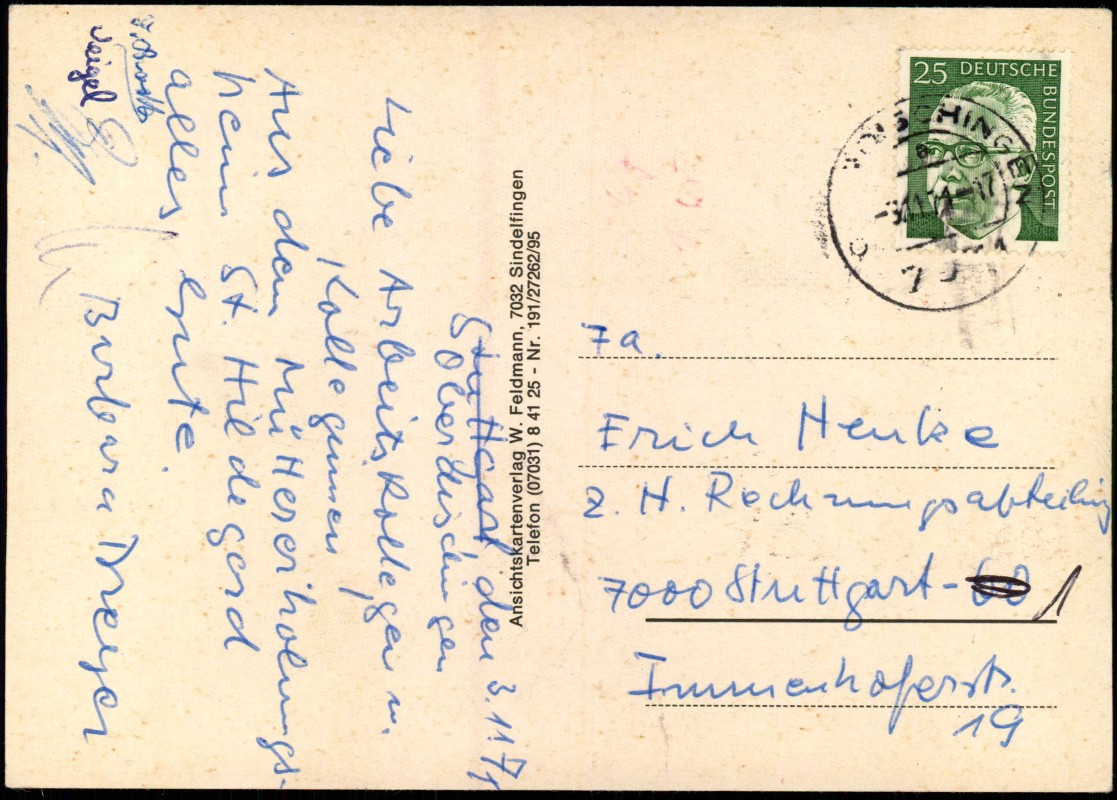 Stuttgart den 3.11.71
Oberdischingen
Liebe Arbeitskollegen u.
Kolleginnen
Aus dem Müttererholungs-
heim St. Hildegard
alles Gute.
Barbara Dreyer
Ansichtskartenverlag W. Feldmann, 7032 Sindelfingen
Telefon (07031) 8 41 25 - Nr. 191/27262/95
25 DEUTSCHE
BUNDESPOST
Fa.
Erich Henke
z. H. Rechnungsabteilung
7000 Stuttgart-1
Immenhoferstr.
19